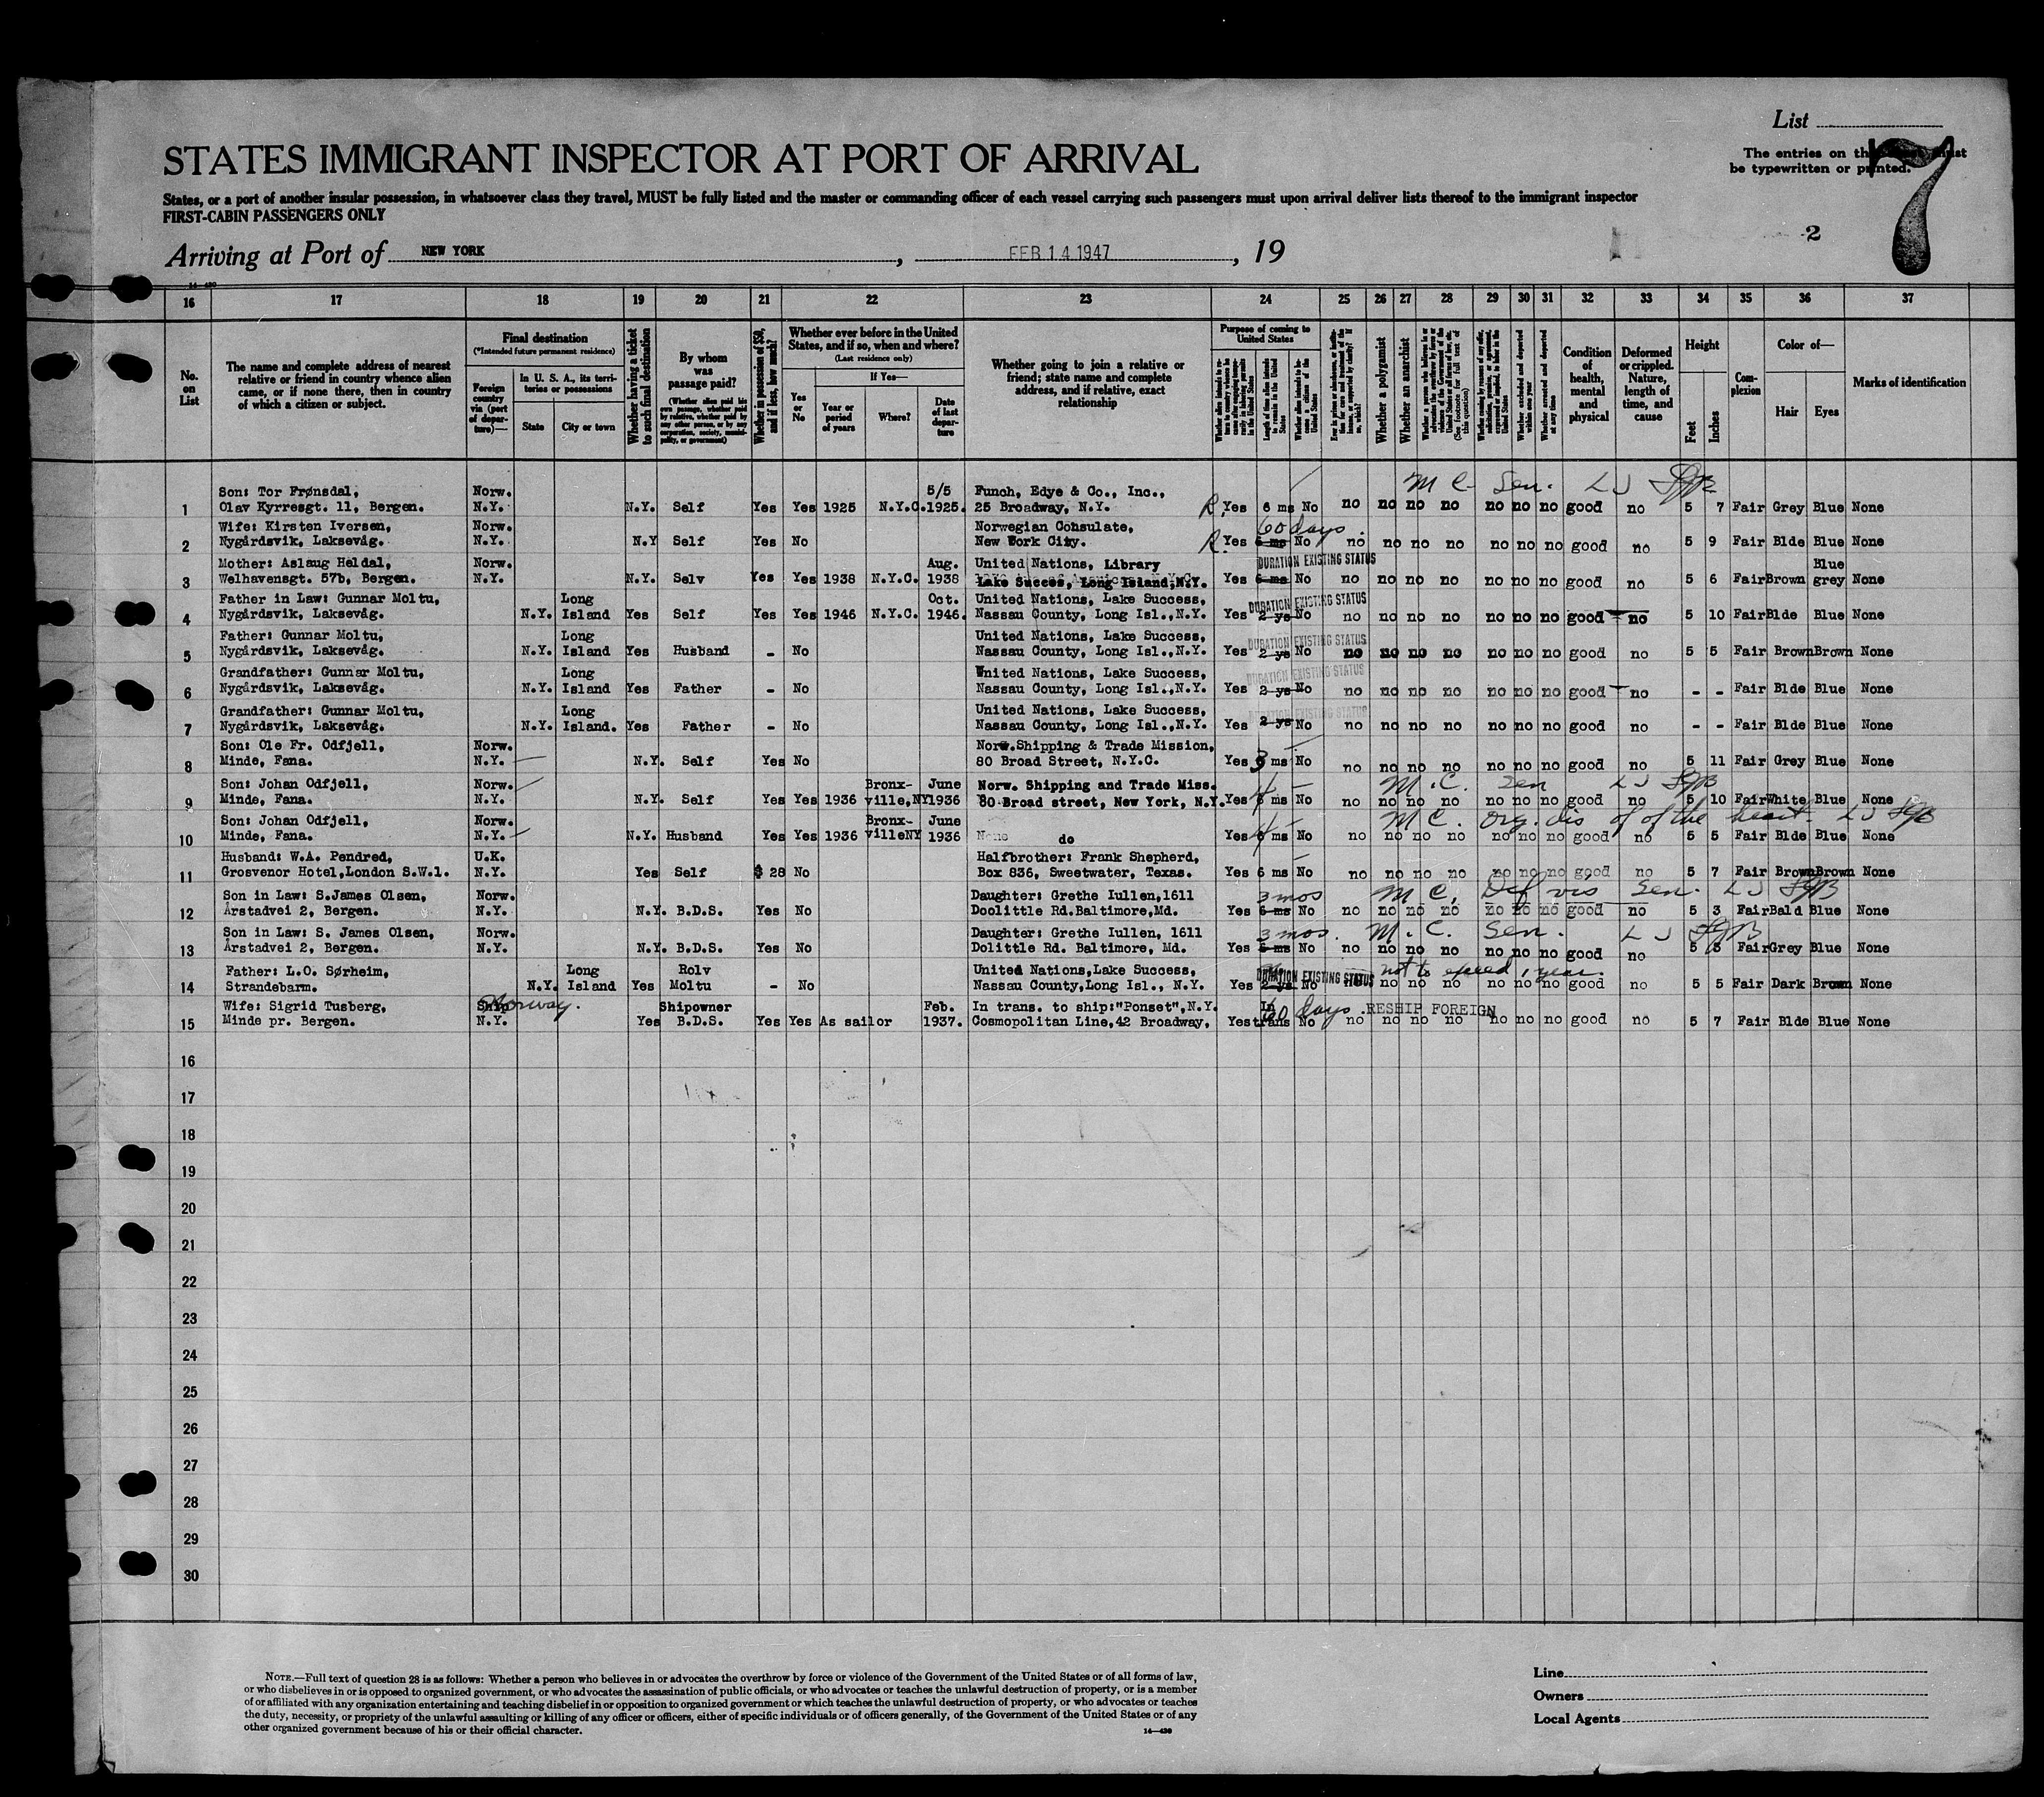 List
The entries on this must
be typewritten or printed.
7
STATES IMMIGRANT INSPECTOR AT PORT OF ARRIVAL
States, or a port of another insular possession, in whatsoever class they travel, MUST be fully listed and the master or commanding officer of each vessel carrying such passengers must upon arrival deliver lists thereof to the immigrant inspector
FIRST-CABIN PASSENGERS ONLY
2
Arriving at Port of NEW YORK , FEB 14 1947 , 19
16 17 18 19 20 21 22 23 24 25 26 27 28 29 30 31 32 33 34 35 36 37
No. on List
The name and complete address of nearest relative or friend in country whence alien came, or if none there, then in country of which a citizen or subject.
Final destination
(*Intended future permanent residence)
Foreign country via (port of departure)—
In U. S. A., its territories or possessions
State
City or town
Whether having a ticket to such final destination
By whom was passage paid?
(Whether alien paid his own passage, whether paid by relative, whether paid by any other person, or by any corporation, society, municipality, or government)
Whether in possession of $50, and if less, how much?
Whether ever before in the United States, and if so, when and where?
(Last residence only)
Yes or No
If Yes—
Year or period of years
Where?
Date of last departure
Whether going to join a relative or friend; state name and complete address, and if relative, exact relationship
Purpose of coming to United States
Length of time alien intends to remain in the United States
Whether alien intends to become a citizen of the United States
Whether a polygamist
Whether an anarchist
Whether excluded and deported within one year
Whether arrested and deported at any time
Condition of health, mental and physical
Deformed or crippled. Nature, length of time, and cause
Height
Feet
Inches
Complexion
Color of—
Hair
Eyes
Marks of identification
M C Sen. L J
1 Son: Tor Frønsdal, Olav Kyrresgt. 11, Bergen. Norw. N.Y. N.Y. Self Yes Yes 1925 N.Y.C. 5/5 1925. Funch, Edye & Co., Inc., 25 Broadway, N.Y. R. Yes 6 ms No no no no no no no no good no 5 7 Fair Grey Blue None
60 days.
2 Wife: Kirsten Iversen, Nygårdsvik, Laksevåg. Norw. N.Y. N.Y Self Yes No Norwegian Consulate, New York City. R. Yes 6 ms No no no no no no no no good no 5 9 Fair Blde Blue None
DURATION EXISTING STATUS
3 Mother: Aslaug Heldal, Welhavensgt. 57b, Bergen. Norw. N.Y. N.Y. Selv Yes Yes 1938 N.Y.C. Aug. 1938 United Nations, Library Lake Succes, Long Island, N.Y. Yes 6 ms No no no no no no no no good no 5 6 Fair Brown Blue grey None
DURATION EXISTING STATUS
4 Father in Law: Gunnar Moltu, Nygårdsvik, Laksevåg. N.Y. Long Island Yes Self Yes Yes 1946 N.Y.C. Oct. 1946. United Nations, Lake Success, Nassau County, Long Isl.,N.Y. Yes 2 ys No no no no no no no no good no 5 10 Fair Blde Blue None
DURATION EXISTING STATUS
5 Father: Gunnar Moltu, Nygårdsvik, Laksevåg. N.Y. Long Island Yes Husband - No United Nations, Lake Success, Nassau County, Long Isl.,N.Y. Yes 2 ys No no no no no no no no good no 5 5 Fair Brown Brown None
DURATION EXISTING STATUS
6 Grandfather: Gunnar Moltu, Nygårdsvik, Laksevåg. N.Y. Long Island Yes Father - No United Nations, Lake Success, Nassau County, Long Isl.,N.Y. Yes 2 ys No no no no no no no no good no - - Fair Blde Blue None
DURATION EXISTING STATUS
7 Grandfather: Gunnar Moltu, Nygårdsvik, Laksevåg. N.Y. Long Island. Yes Father - No United Nations, Lake Success, Nassau County, Long Isl.,N.Y. Yes 2 ys No no no no no no no no good no - - Fair Blde Blue None
8 Son: Ole Fr. Odfjell, Minde, Fana. Norw. N.Y. N.Y. Self Yes No Norw.Shipping & Trade Mission, 80 Broad Street, N.Y.C. Yes 3 ms No no no no no no no no good no 5 11 Fair Grey Blue None
M.C. Sen L J
9 Son: Johan Odfjell, Minde, Fana. Norw. N.Y. N.Y. Self Yes Yes 1936 Bronx-ville,NY June 1936 Norw. Shipping and Trade Miss. 80 Broad street, New York, N.Y. Yes 4 ms No no no no no no no no good no 5 10 Fair White Blue None
M C. Org. dis of of the heart. L J
10 Son: Johan Odfjell, Minde, Fana. Norw. N.Y. N.Y. Husband Yes Yes 1936 Bronx-villeNY June 1936 None do Yes 4 ms No no no no no no no no good no 5 5 Fair Blde Blue None
11 Husband: W.A. Pendred, Grosvenor Hotel,London S.W.1. U.K. N.Y. Yes Self $ 28 No Halfbrother: Frank Shepherd, Box 836, Sweetwater, Texas. Yes 6 ms No no no no no no no no good no 5 7 Fair Brown Brown None
3 mos M C, Def vis Sen. L J
12 Son in Law: S.James Olsen, Årstadvei 2, Bergen. Norw. N.Y. N.Y. B.D.S. Yes No Daughter: Grethe Iullen,1611 Doolittle Rd.Baltimore,Md. Yes 6 ms No no no no no no no no good no 5 3 Fair Bald Blue None
3 mos. M.C. Sen. L J
13 Son in Law: S. James Olsen, Årstadvei 2, Bergen. Norw. N.Y. N.Y. B.D.S. Yes No Daughter: Grethe Iullen, 1611 Dolittle Rd. Baltimore, Md. Yes 6 ms No no no no no no no no good no 5 3 Fair Grey Blue None
DURATION EXISTING STATUS not to exceed 1 year.
14 Father: L.O. Sørheim, Strandebarm. N.Y. Long Island Yes Rolv Moltu - No United Nations,Lake Success, Nassau County,Long Isl., N.Y. Yes 2 ys No no no no no no no no good no 5 5 Fair Dark Brown None
Norway. 60 days. RESHIP FOREIGN
15 Wife: Sigrid Tusberg, Minde pr. Bergen. Ship N.Y. Yes Shipowner B.D.S. Yes Yes As sailor Feb. 1937. In trans. to ship:"Ponset",N.Y. Cosmopolitan Line,42 Broadway, Yes In trans No no no no no no no no good no 5 7 Fair Blde Blue None
16
17
18
19
20
21
22
23
24
25
26
27
28
29
30
NOTE.—Full text of question 28 is as follows: Whether a person who believes in or advocates the overthrow by force or violence of the Government of the United States or of all forms of law,
or who disbelieves in or is opposed to organized government, or who advocates the assassination of public officials, or who advocates or teaches the unlawful destruction of property, or is a member
of or affiliated with any organization entertaining and teaching disbelief in or opposition to organized government or which teaches the unlawful destruction of property, or who advocates or teaches
the duty, necessity, or propriety of the unlawful assaulting or killing of any officer or officers, either of specific individuals or of officers generally, of the Government of the United States or of any
other organized government because of his or their official character.
14—430
Line
Owners
Local Agents